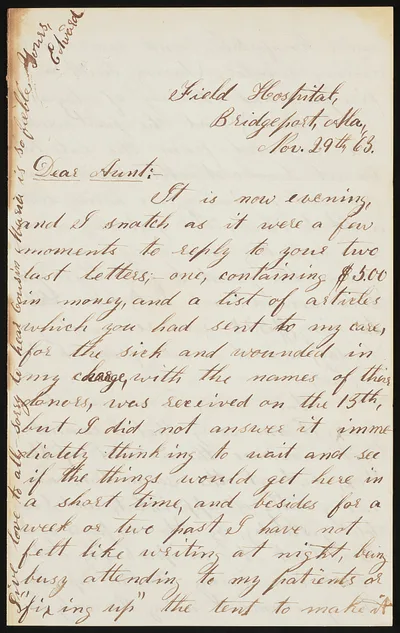 Field Hospital,
Bridgeport, Ala,
Nov. 29th, 63.
Dear Aunt:-
It is now evening,
and I snatch as it were a few
moments to reply to your two
last letters;- one, containing $5.00
in money, and a list of articles
which you had sent to my care,
for the sick and wounded in
my charge, with the names of their
donors, was received on the 15th,
but I did not answer it imme
diately thinking to wait and see
if the things would get here in
a short time, and besides for a
week or two past I have not
felt like writing at night, being
busy attending to my patients or
"fixing up" the tent to make it
Give love to all- sorry to hear Cousin Maria is so feeble. Yours,
Edward